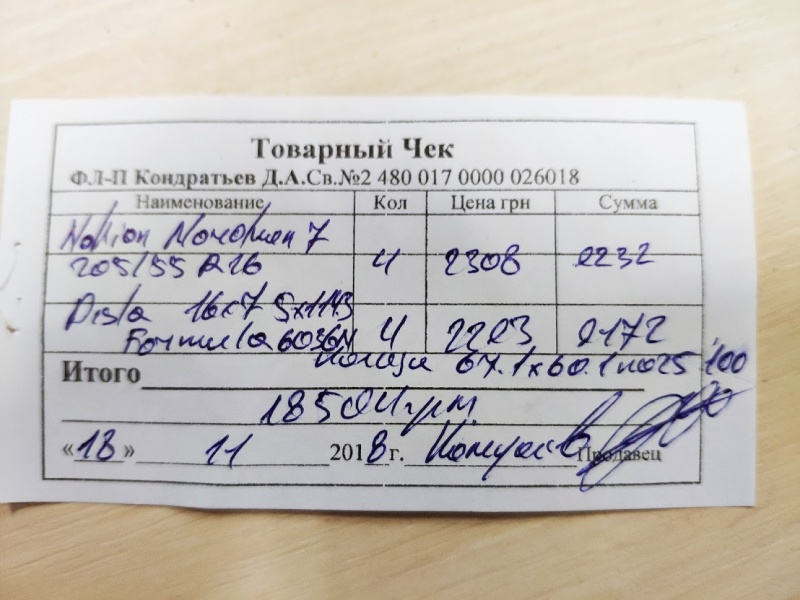 Товарный Чек
ФЛ-П Кондратьев Д.А.Св.№2 480 017 0000 026018
Наименование Кол Цена грн Сумма
Nokian Nordman 7
205/55 R16 4 2308 9232
16x7 5x114.3
Formula 60364 4 2293 9172
кольца 67.1x60.1 по 25 100
Итого
18504 грн
«18» 11 2018г. Продавец